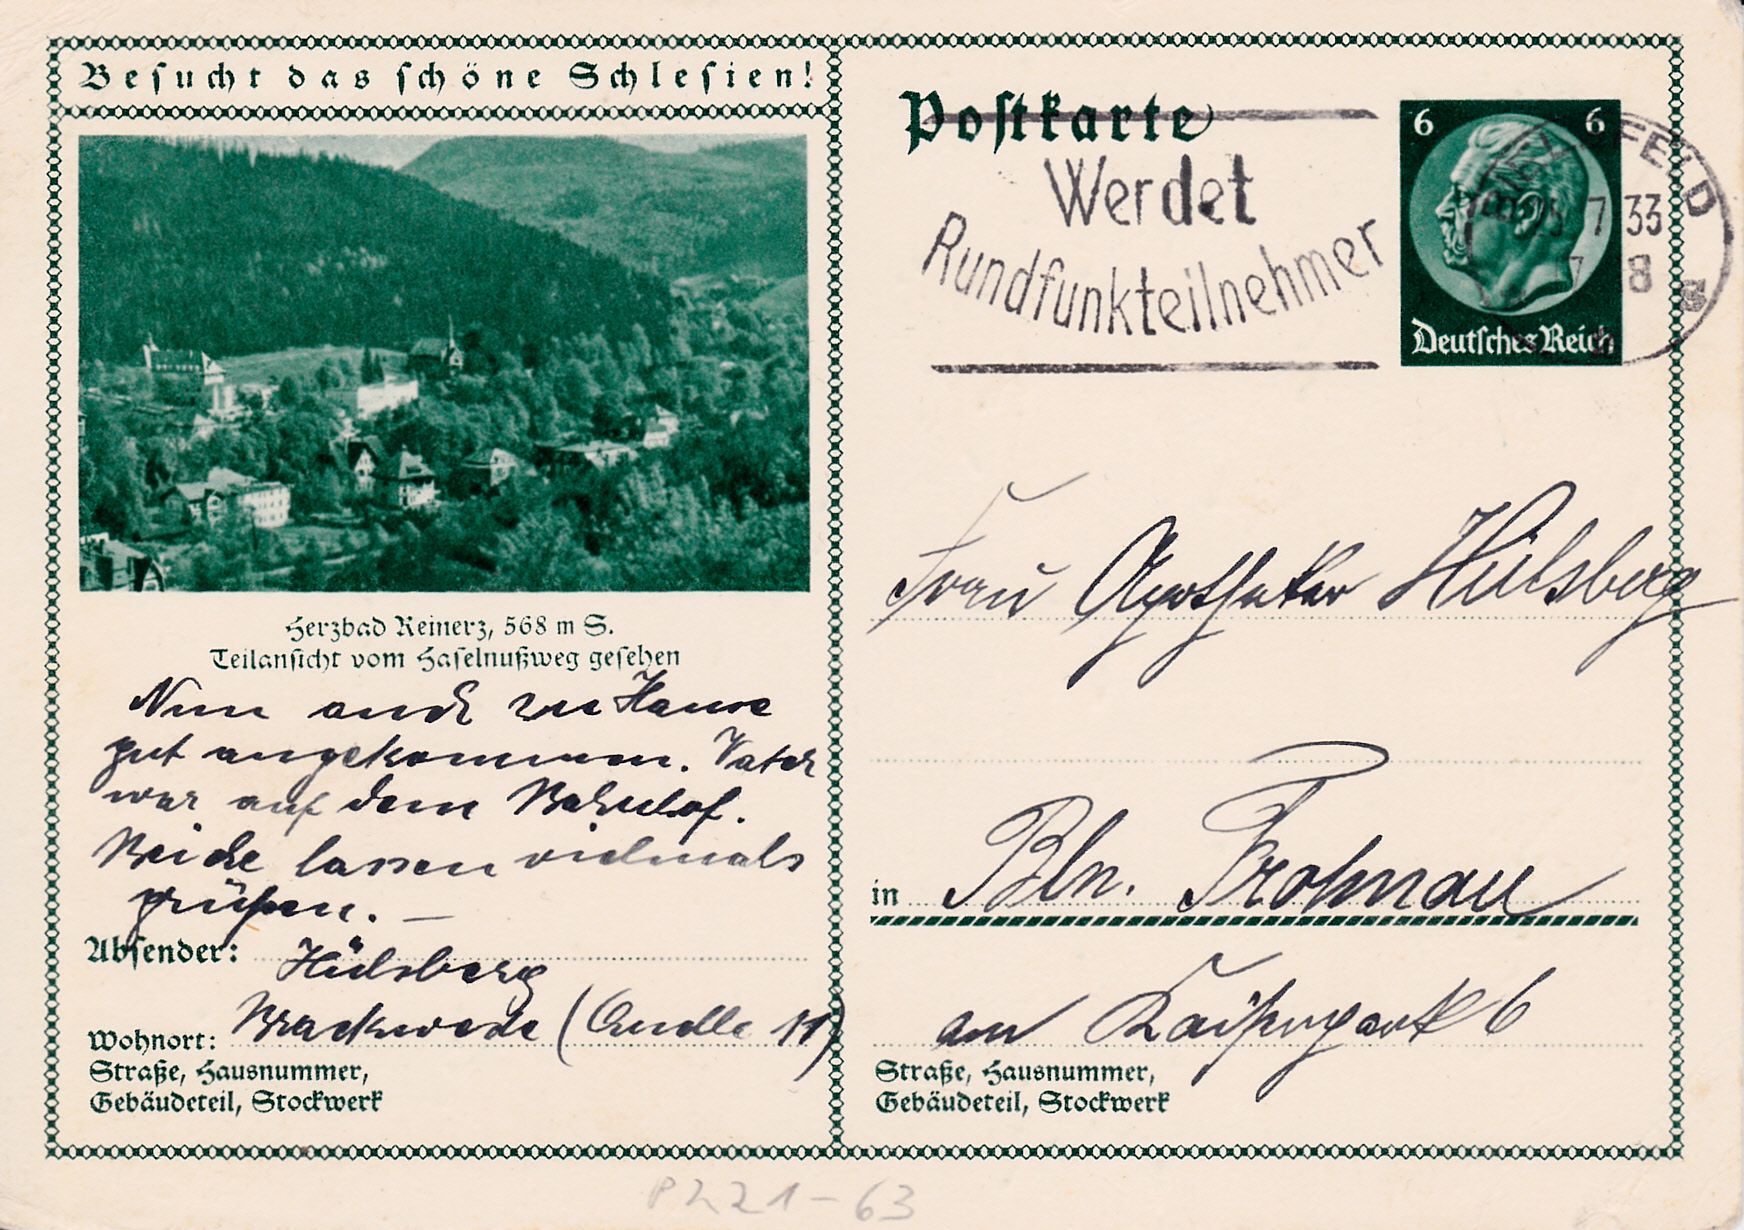 Besucht das schöne Schlesien!
Herzbad Reinerz, 568 m S.
Teilansicht vom Haselnußweg gesehen
Nun auch zu Hause
gut angekommen. Vater
war auf dem Bahnhof.
Beide lassen vielmals
grüßen. —
Absender: Hülsberg
Wohnort: Brackwede (Quelle 11)
Straße, Hausnummer,
Gebäudeteil, Stockwerk
Postkarte
Werdet
Rundfunkteilnehmer
6 6
Deutsches Reich
FELD
7 33
8
Frau Apotheker Hülsberg
in Bln. Frohnau
am Kaiserpark 6
Straße, Hausnummer,
Gebäudeteil, Stockwerk
P221-63